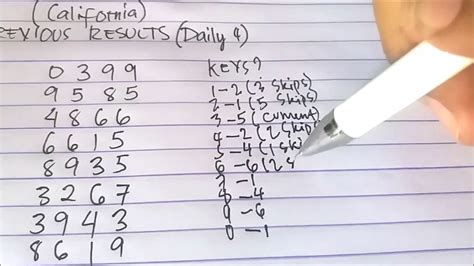 (California)
REVIOUS RESULTS (Daily 4)
0 3 9 9
9 5 8 5
4 8 6 6
6 6 1 5
8 9 3 5
3 2 6 7
3 9 4 3
8 6 1 9
KEYS?
1-2 (3 skips)
2-1 (5 skips)
3-5 (current)
4-2 (2 skips)
5-4 (1 sk
6-6 (2 s
7-1
8-4
9-6
0-1